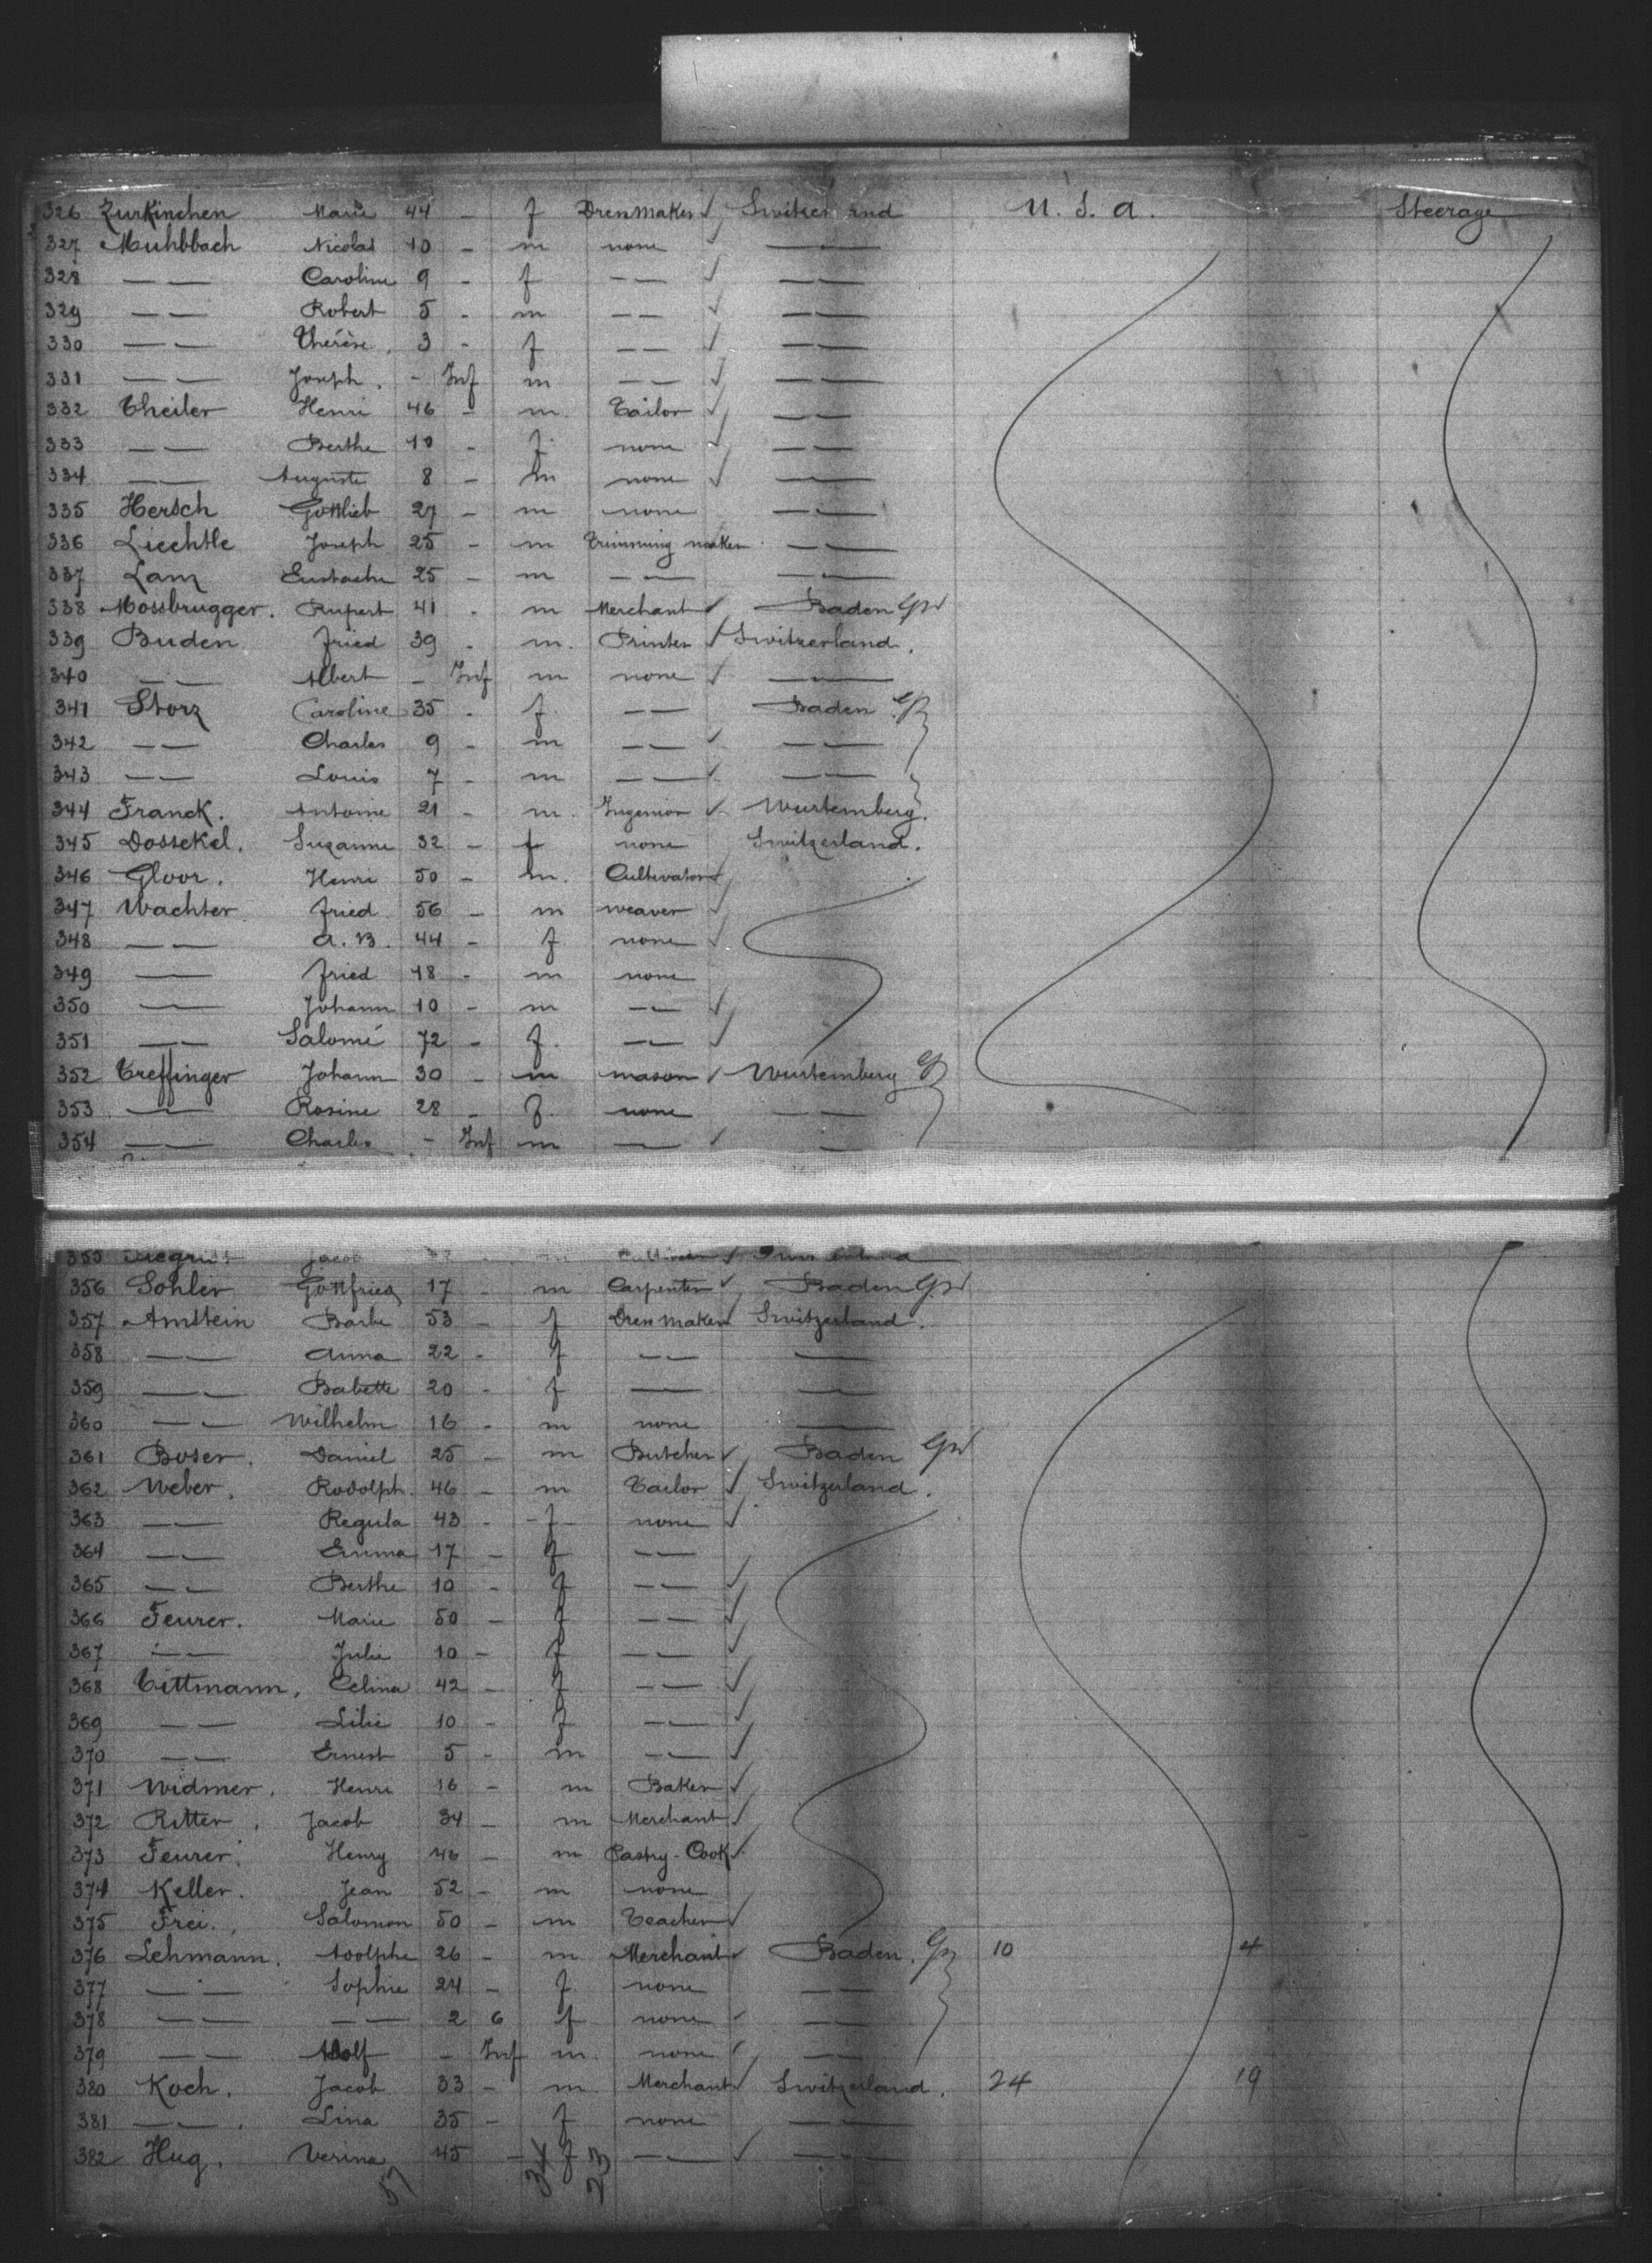 326 Zurkinchen Marie 44 - f Dressmaker ✓ Switzerland U. S. A. Steerage
327 Muhlbach Nicolas 10 - m none ✓ — —
328 — — Caroline 9 - f — — ✓ — —
329 — — Robert 5 - m — — ✓ — —
330 — — Thérèse 3 - f — — ✓ — —
331 — — Joseph - Inf m — — ✓ — —
332 Theiler Henri 46 - m Tailor ✓ — —
333 — — Berthe 10 - f none ✓ — —
334 — — Auguste 8 - m none ✓ — —
335 Hersch Gottlieb 27 - m none — —
336 Liechtle Joseph 25 - m Trimming maker — —
337 Lanz Eustache 25 - m — — — —
338 Mossbrugger. Rupert 41 - m Merchant ✓ Baden
339 Buden Fried 39 - m. Printer ✓ Switzerland.
340 — — Albert - Inf m none ✓ — —
341 Storz Caroline 35 - f — — Baden
342 — — Charles 9 - m — — ✓ — —
343 — — Louis 7 - m — — ✓ — —
344 Franck. Antoine 21 - m. Ingenior ✓ Wurtemberg.
345 Dossekel. Suzanne 32 - f none Switzerland.
346 Gloor. Henri 50 - m. Cultivator ✓
347 Wachter Fried 56 - m weaver ✓
348 — — A. B. 44 - f none ✓
349 — — Fried 18 - m none
350 — — Johann 10 - m — — ✓
351 — — Salomé 72 - f. — — ✓
352 Treffinger Johann 30 - m mason ✓ Wurtemberg
353 — — Rosine 28 - f. none — —
354 — — Charles - Inf m — ✓ —
355 Jacob m ✓
356 Sohler Gottfried 17 - m Carpenter ✓ Baden
357 Amstein Barbe 53 - f Dress maker Switzerland.
358 — — Anna 22 - f — — —
359 — — Babette 20 - f — — —
360 — — Wilhelm 16 - m none —
361 Boser. Daniel 25 - m Butcher ✓ Baden
362 Weber. Rodolph. 46 - m Tailor ✓ Switzerland.
363 — — Regula 43 - f none ✓
364 — — Emma 17 - f — —
365 — — Berthe 10 - f — — ✓
366 Feurer. Marie 50 - f — — ✓
367 — — Julie 10 - f — — ✓
368 Tittmann, Celina 42 - f — — ✓
369 — — Lilie 10 - f — — ✓
370 — — Ernest 5 - m — — ✓
371 Widmer. Henri 16 - m Baker ✓
372 Ritter. Jacob 34 - m Merchant ✓
373 Feurer. Henry 46 - m Pastry-Cook ✓
374 Keller. Jean 52 - m none
375 Frei. Salomon 50 - m Teacher ✓
376 Lehmann. Adolphe 26 - m Merchant ✓ Baden. 10 4
377 — — Sophie 24 - f. none — —
378 — — — — 2 6 f none ✓ — —
379 — — Adolf - Inf m. none ✓ — —
380 Koch. Jacob 33 - m. Merchant ✓ Switzerland. 24 19
381 — — Lina 35 - f none — —
382 Hug. Verina 45 - f — — ✓ — —
57 34 23